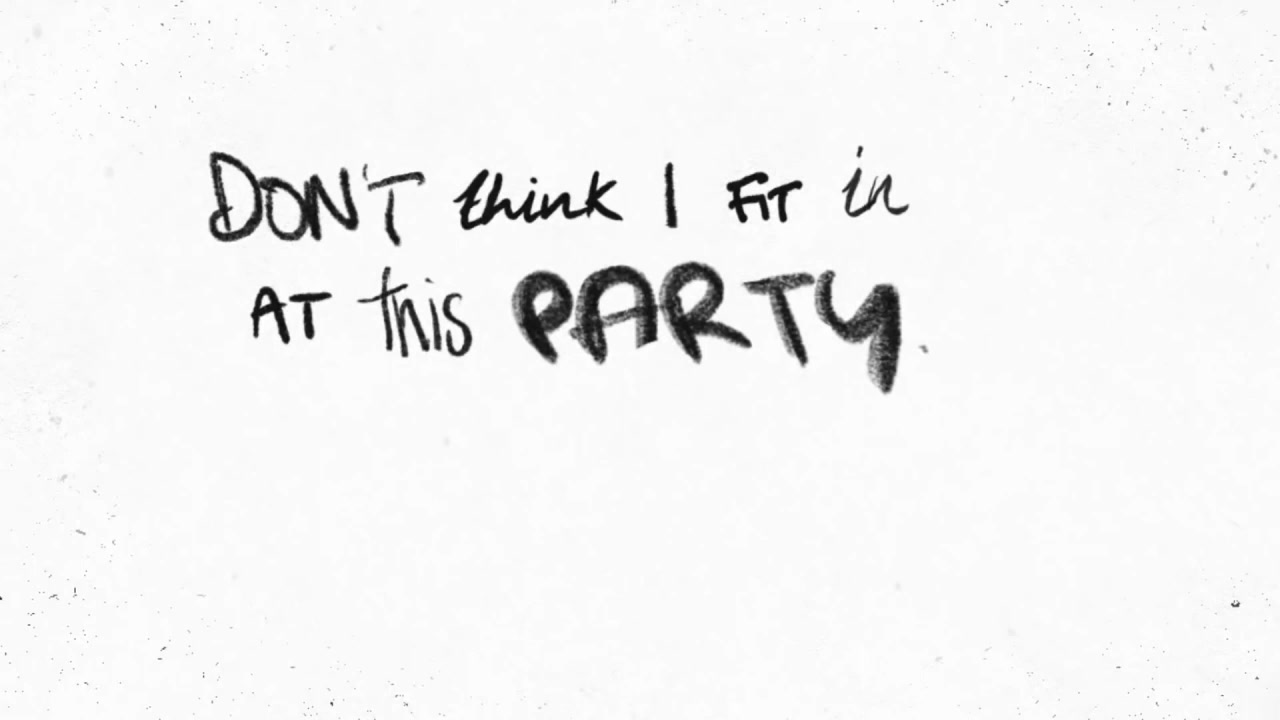 DON'T think I FiT in
AT this PARTY.